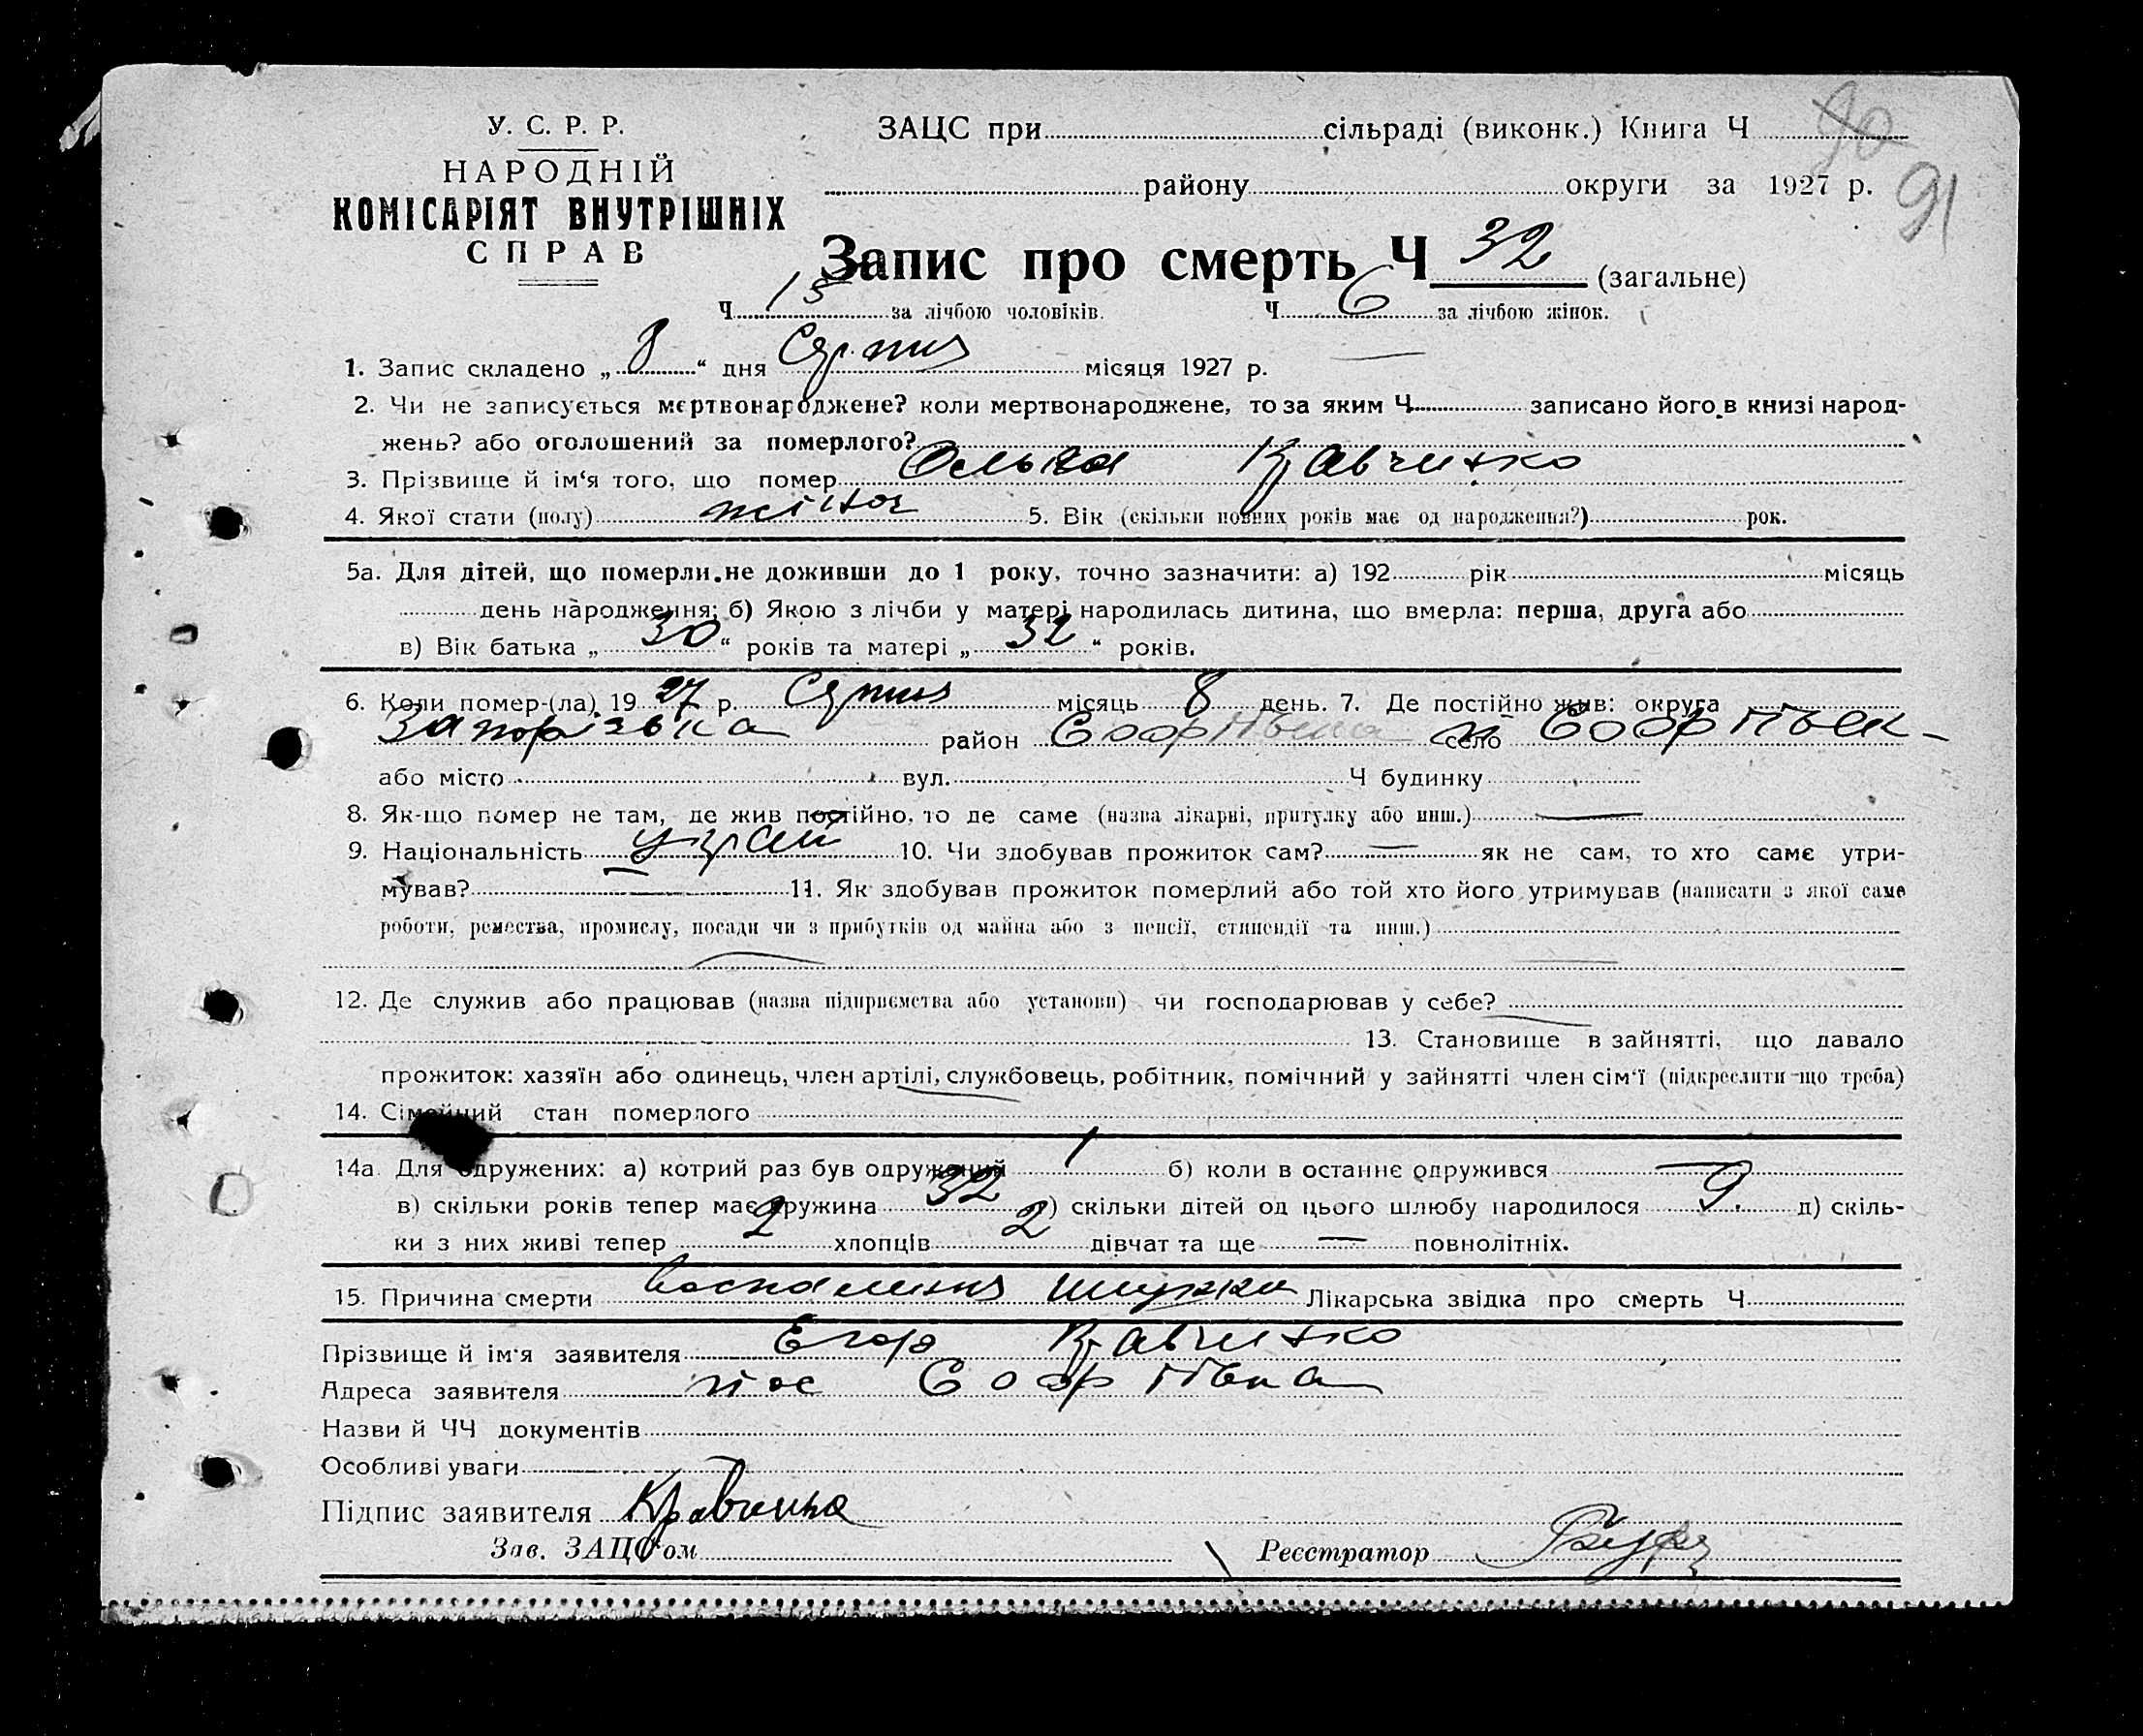 У. С. Р. Р.
НАРОДНІЙ
КОМІСАРІЯТ ВНУТРІШНІХ
СПРАВ
ЗАЦС при сільраді (виконк.) Книга Ч 90
91
району округи за 1927 р.
Запис про смерть Ч 32 (загальне)
Ч за лічбою чоловіків. Ч 6 за лічбою жінок.
1. Запис складено „ 8 “ дня Серпня місяця 1927 р.
2. Чи не записується мертвонароджене? коли мертвонароджене, то за яким Ч записано його в книзі народ-
жень? або оголошений за померлого?
3. Прізвище й ім‘я того, що помер Ольга Кравченко
4. Якої стати (полу) жіноч 5. Вік (скільки повних років має од народження?) рок.
5а. Для дітей, що померли не доживши до 1 року, точно зазначити: а) 192 рік місяць
день народження; б) Якою з лічби у матері народилась дитина, що вмерла: перша, друга або
в) Вік батька „ 30 “ років та матері „ 32 “ років.
6. Коли помер-(ла) 19 27 р. Серпня місяць 8 день. 7. Де постійно жив: округа
Запорізька район Софіївка село Софіївк-
або місто вул. Ч будинку
8. Як-що помер не там, де жив постійно, то де саме (назва лікарні, притулку або инш.) —
9. Національність Україн 10. Чи здобував прожиток сам? — як не сам, то хто саме утри-
мував? — 11. Як здобував прожиток померлий або той хто його утримував (написати з якої саме
роботи, ремества, промислу, посади чи з прибутків од майна або з пенсії, стипендії та инш.)
12. Де служив або працював (назва підприємства або установи) чи господарював у себе?
13. Становище в зайнятті, що давало
прожиток: хазяїн або одинець, член артілі, службовець, робітник, помічний у зайнятті член сім‘ї (підкреслити що треба)
14. Сімейний стан померлого
14а. Для одружених: а) котрий раз був одружений 1 б) коли в останнє одружився —
в) скільки років тепер має дружина 32 г) скільки дітей од цього шлюбу народилося 9. д) скіль-
ки з них живі тепер 2 хлопців 2 дівчат та ще — повнолітніх.
15. Причина смерти Воспаления Лікарська звідка про смерть Ч
Прізвище й ім‘я заявителя Егор Кравченко
Адреса заявителя пос Софіївка
Назви й ЧЧ документів
Особливі уваги
Підпис заявителя Кравченко
Зав. ЗАЦС‘ом Реєстратор